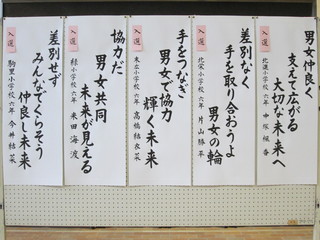 男女仲良く
支えて広がる
大切な未来へ
入選
北進小学校六年
差別なく
手を取り合おうよ
男女の輪
入選
北栄小学校六年 片山勝平
手をつなぎ
男女で協力
輝く未来
入選
高橋結衣菜
協力だ
男女共同
未来が見える
入選
緑小学校六年 米田海波
差別せず
みんなでくらそう
仲良し未来
入選
駒里小学校六年 今井結菜